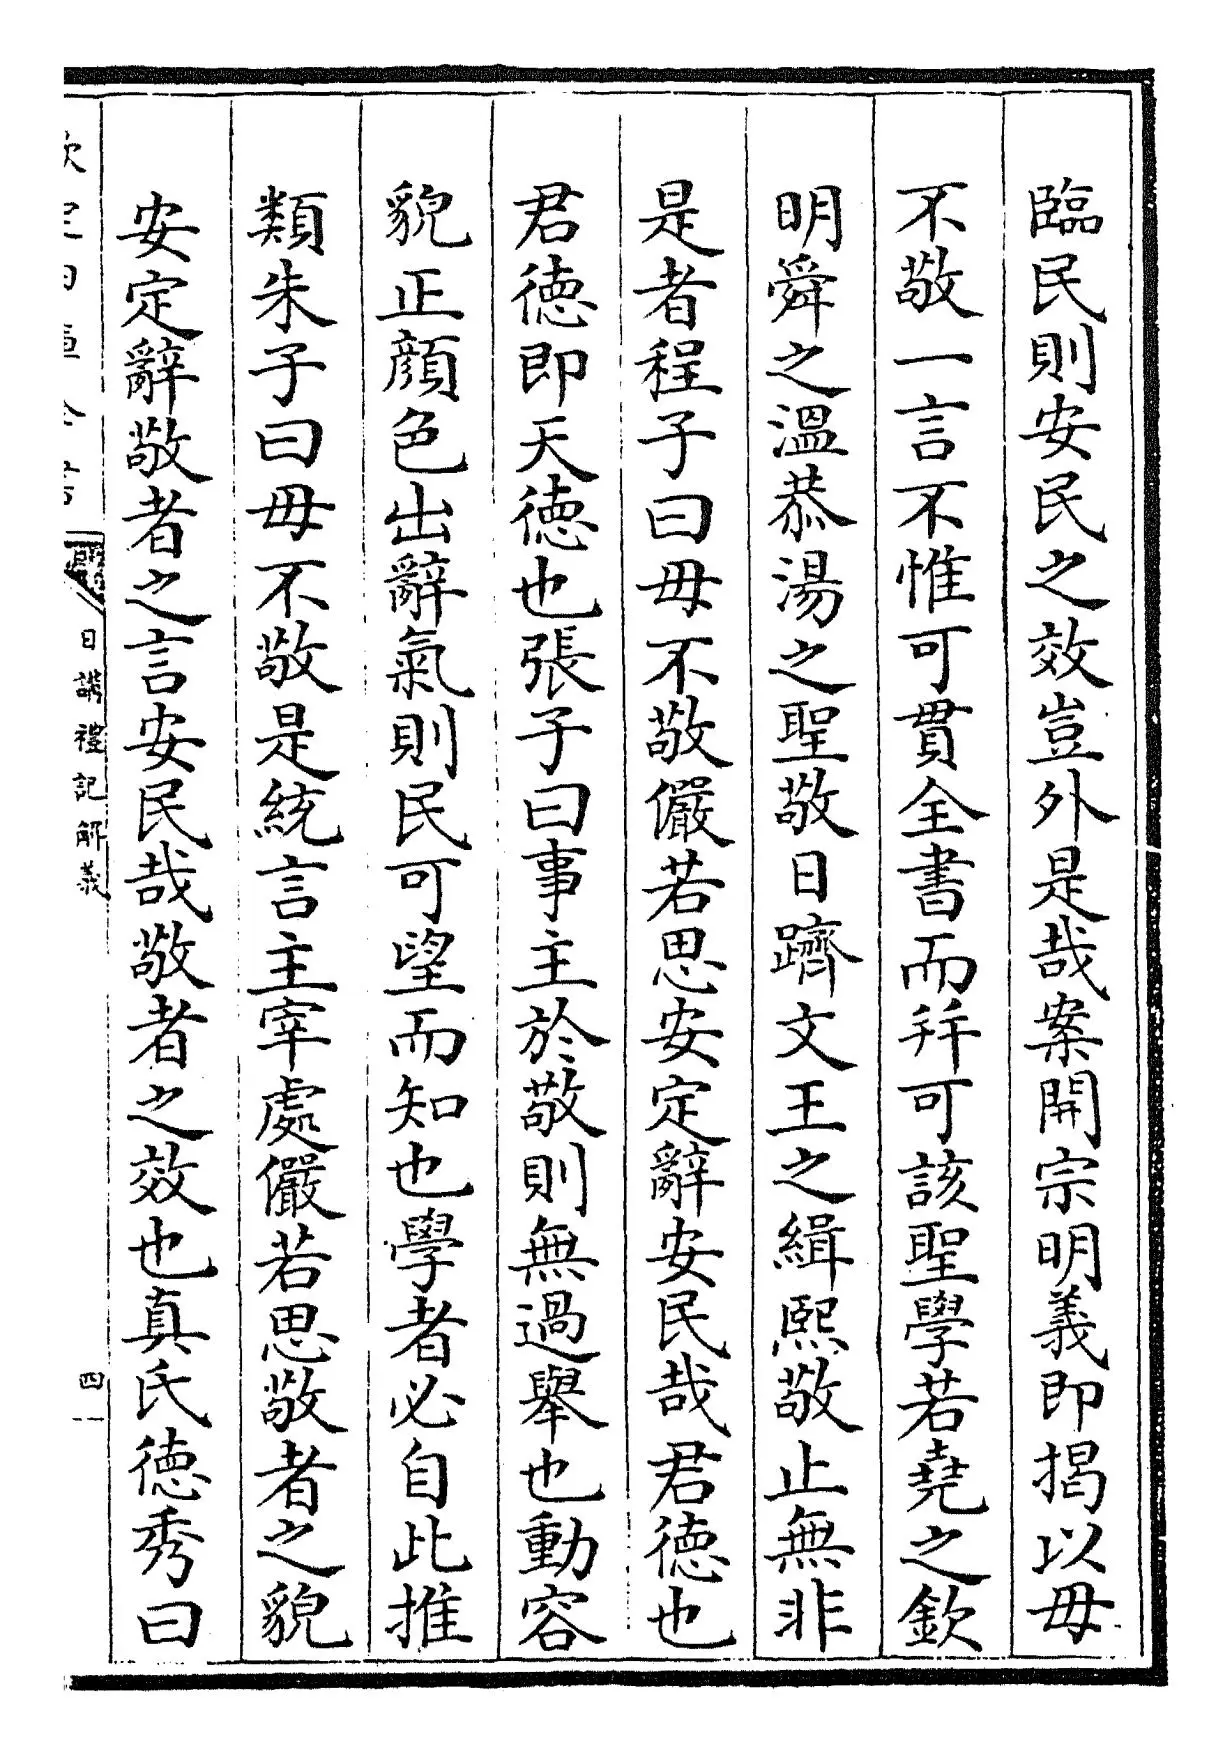 臨民則安民之效豈外是哉案開宗明義即揭以毋
不敬一言不惟可貫全書而并可該聖學若堯之欽
明舜之溫恭湯之聖敬日躋文王之緝熙敬止無非
是者程子曰毋不敬儼若思安定辭安民哉君德也
君德即天德也張子曰事主於敬則無過舉也動容
貌正顔色出辭氣則民可望而知也學者必自此推
類朱子曰毋不敬是統言主宰處儼若思敬者之貌
安定辭敬者之言安民哉敬者之效也真氏德秀曰
日講禮記解義
四